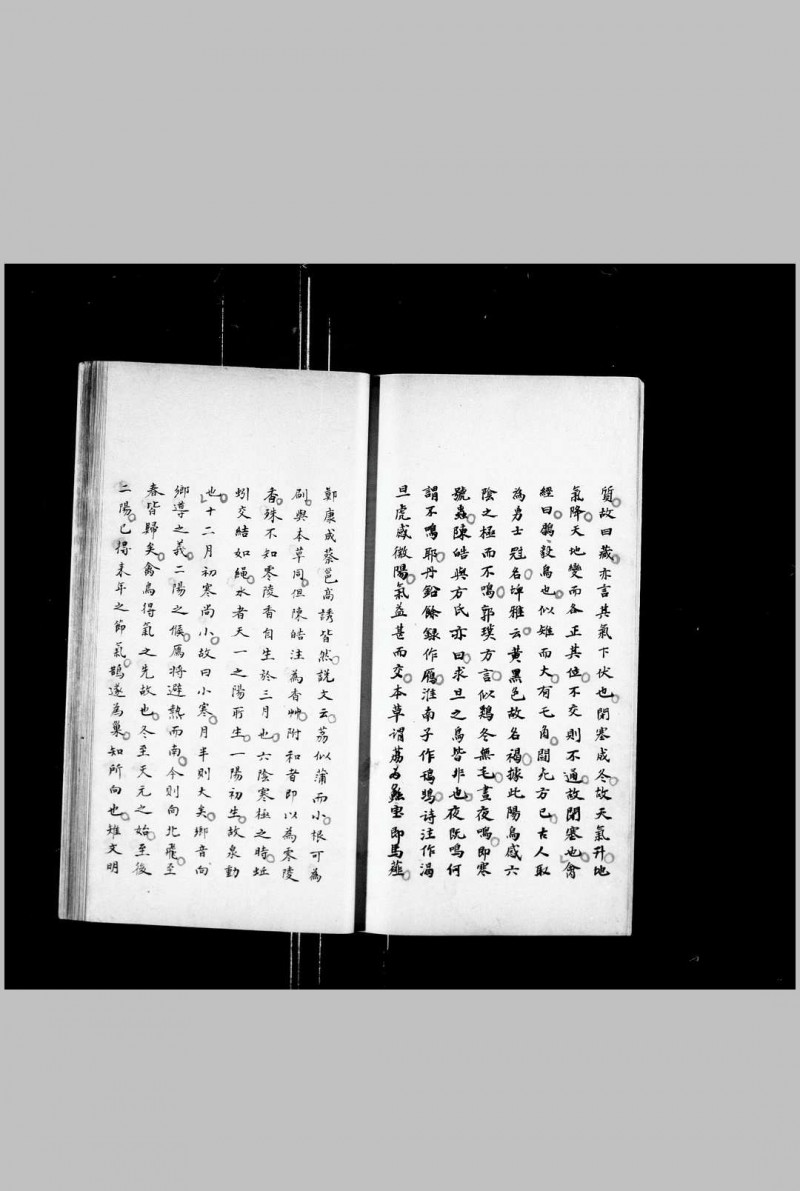 質故曰藏亦言其氣下伏也閉塞成冬故天氣升地
氣降天地變而各正其位不交則不通故閉塞也禽
經曰鶡毅鳥也似雉而大有毛角鬬死方已古人取
為勇士冠名埤雅云黃黑色故名褐據此陽鳥感六
陰之極而不鳴郭璞方言似鷄冬無毛晝夜鳴即寒
號蟲陳皓與方氏亦曰求旦之鳥皆非也夜既鳴何
謂不鳴耶丹鉛餘錄作鴈淮南子作鳱鴠詩注作渴
旦虎感微陽氣益甚而交本草謂荔為蠡實即馬薤
鄭康成蔡邕高誘皆然說文云荔似蒲而小根可為
刷與本草同但陳皓注為香艸附和者即以為零陵
香殊不知零陵香自生於三月也六陰寒極之時蚯
蚓交結如繩水者天一之陽所生一陽初生故泉動
也十二月初寒尚小故曰小寒月半則大矣鄉音向
鄉導之義二陽之候鴈將避熱而南今則向北飛至
春皆歸矣禽鳥得氣之先故也冬至天元之始至後
二陽已得來年之節氣鵲遂為巢知所向也雉文明